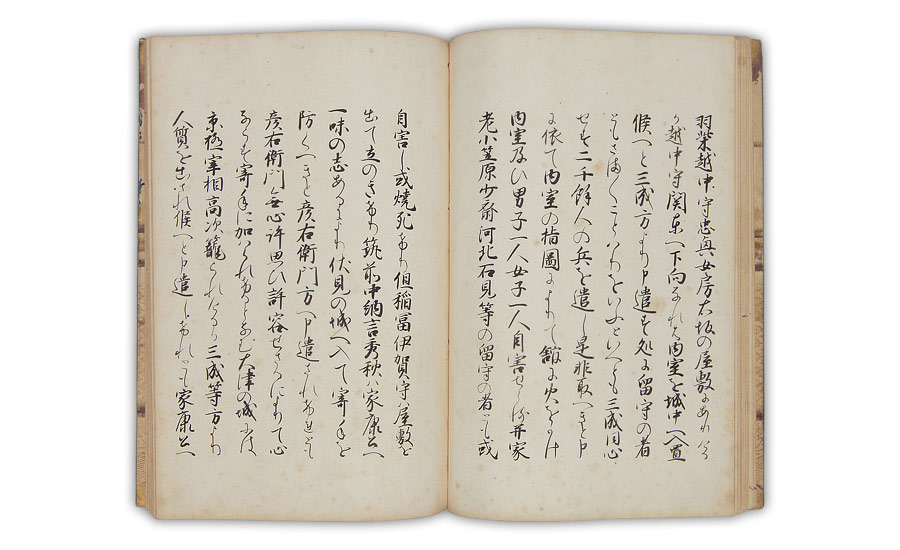 羽柴越中守忠興女房大坂の屋敷にありけるか
越中守関東へ下向なれは内室を城中へ入置
候へと三成方より申遣す処に留守の者
ともさま〱ことはりをいふといへとも三成同心
せす二千餘人の兵を遣し是非取へきと申
に依て内室の指圖にまかせて舘に火をかけ
内室及ひ男子一人女子一人自害せらる并家
老小笠原少斎河北石見等の留守の者とも或
自害し或焼死あり但稲冨伊賀守屋敷を
出て立のきあり筑前中納言秀秋は家康公へ
一味の志あるにより伏見の城へ入て寄手を
防くへきと彦右衛門方へ申遣されけれとも
彦右衛門無心許思ひ許容せさるによりて心
ならす寄手に加はられけるとなむ大津の城には
京極宰相高次籠られたり三成等方より
人質を出され候へと申遣しけれとも家康公へ